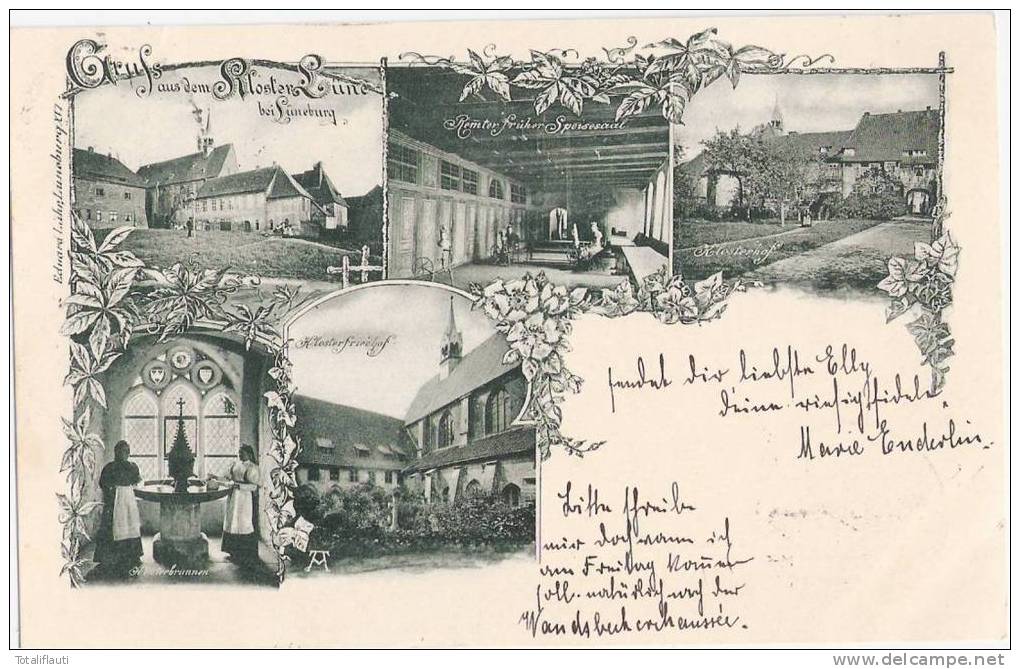 Gruss
aus dem Kloster Lüne
bei Lüneburg
Remter früher Speisesaal
Klosterhof
Klosterfriedhof
Klosterbrunnen
Eduard Lühr, Lüneburg XVI
sendet dir liebste Elly
deine riesigfidele
Marie Enderlin.
Bitte schreibe
mir doch wann ich
am Freitag kommen
soll. natürlich nach der
Wandsbecherchaussée.
Totaliflauti
www.delcampe.net